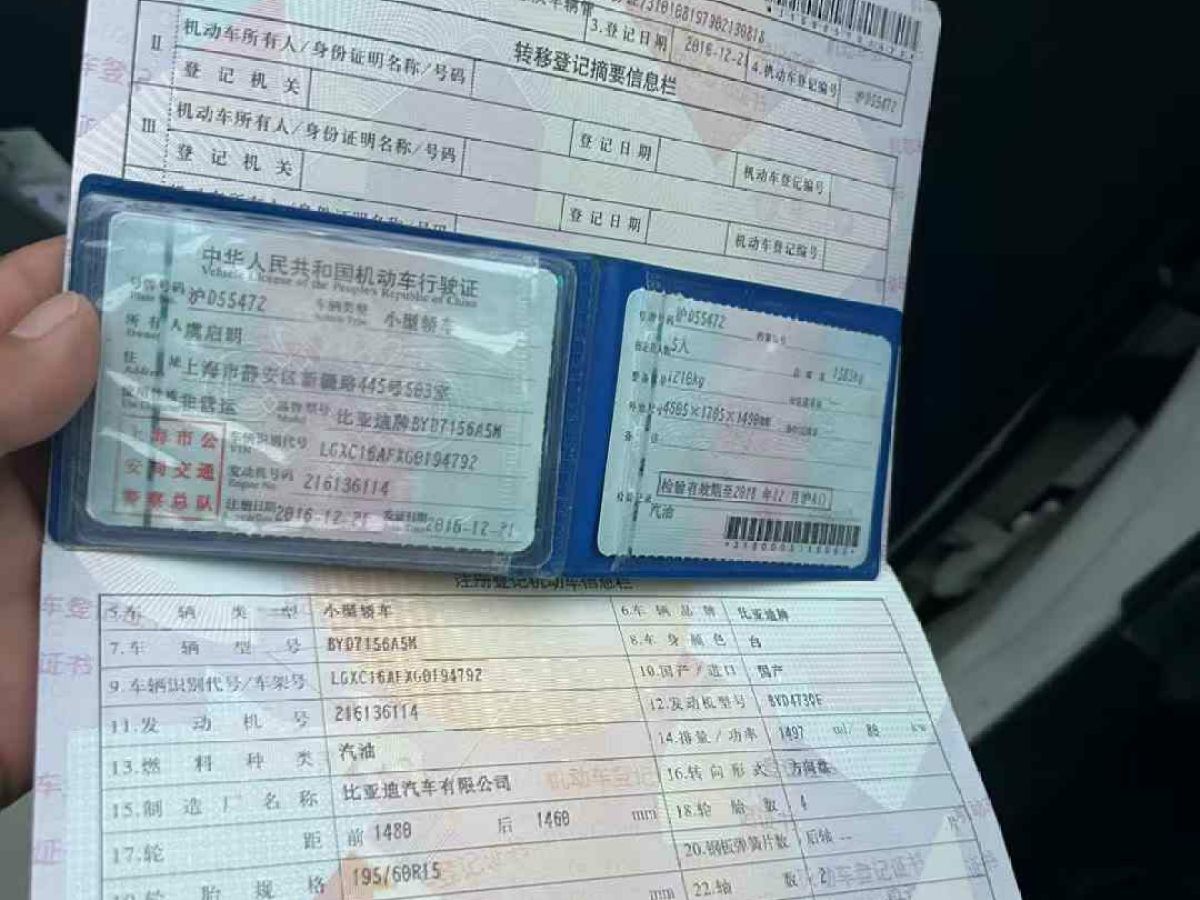 3.登记日期 2016-12-21 4.机动车登记编号 沪D55472
转移登记摘要信息栏
II 机动车所有人/身份证明名称/号码
登记机关 登记日期 机动车登记编号
III 机动车所有人/身份证明名称/号码
登记机关 登记日期 机动车登记编号
中华人民共和国机动车行驶证
Vehicle License of the People's Republic of China
号牌号码 沪D55472 车辆类型 小型轿车
所有人 虞启明
住址 上海市静安区新疆路445号503室
使用性质 非营运 品牌型号 比亚迪牌BYD7156A5M
上海市公
安局交通
警察总队
车辆识别代号 LGXC16AFXG0194792
发动机号码 216136114
注册日期 2016-12-21 发证日期 2016-12-21
号牌号码 沪D55472
5人
1210kg
外廓尺寸 4585×1785×1490mm
备注
检验有效期至2018年12月沪A
检验记录
汽油
注册登记机动车信息栏
5.车辆类型 小型轿车 6.车辆品牌 比亚迪牌
7.车辆型号 BYD7156A5M 8.车身颜色 白
9.车辆识别代号/车架号 LGXC16AFXG0194792 10.国产/进口 国产
11.发动机号 216136114 12.发动机型号 BYD473QE
13.燃料种类 汽油 14.排量/功率 1497 ml/ 80 kw
15.制造厂名称 比亚迪汽车有限公司 16.转向形式 方向盘
17.轮距 前 1480 后 1460 mm 18.轮胎数 4
轮胎规格 195/60R15 20.钢板弹簧片数 后轴 -- 片
mm 22.轴数 2